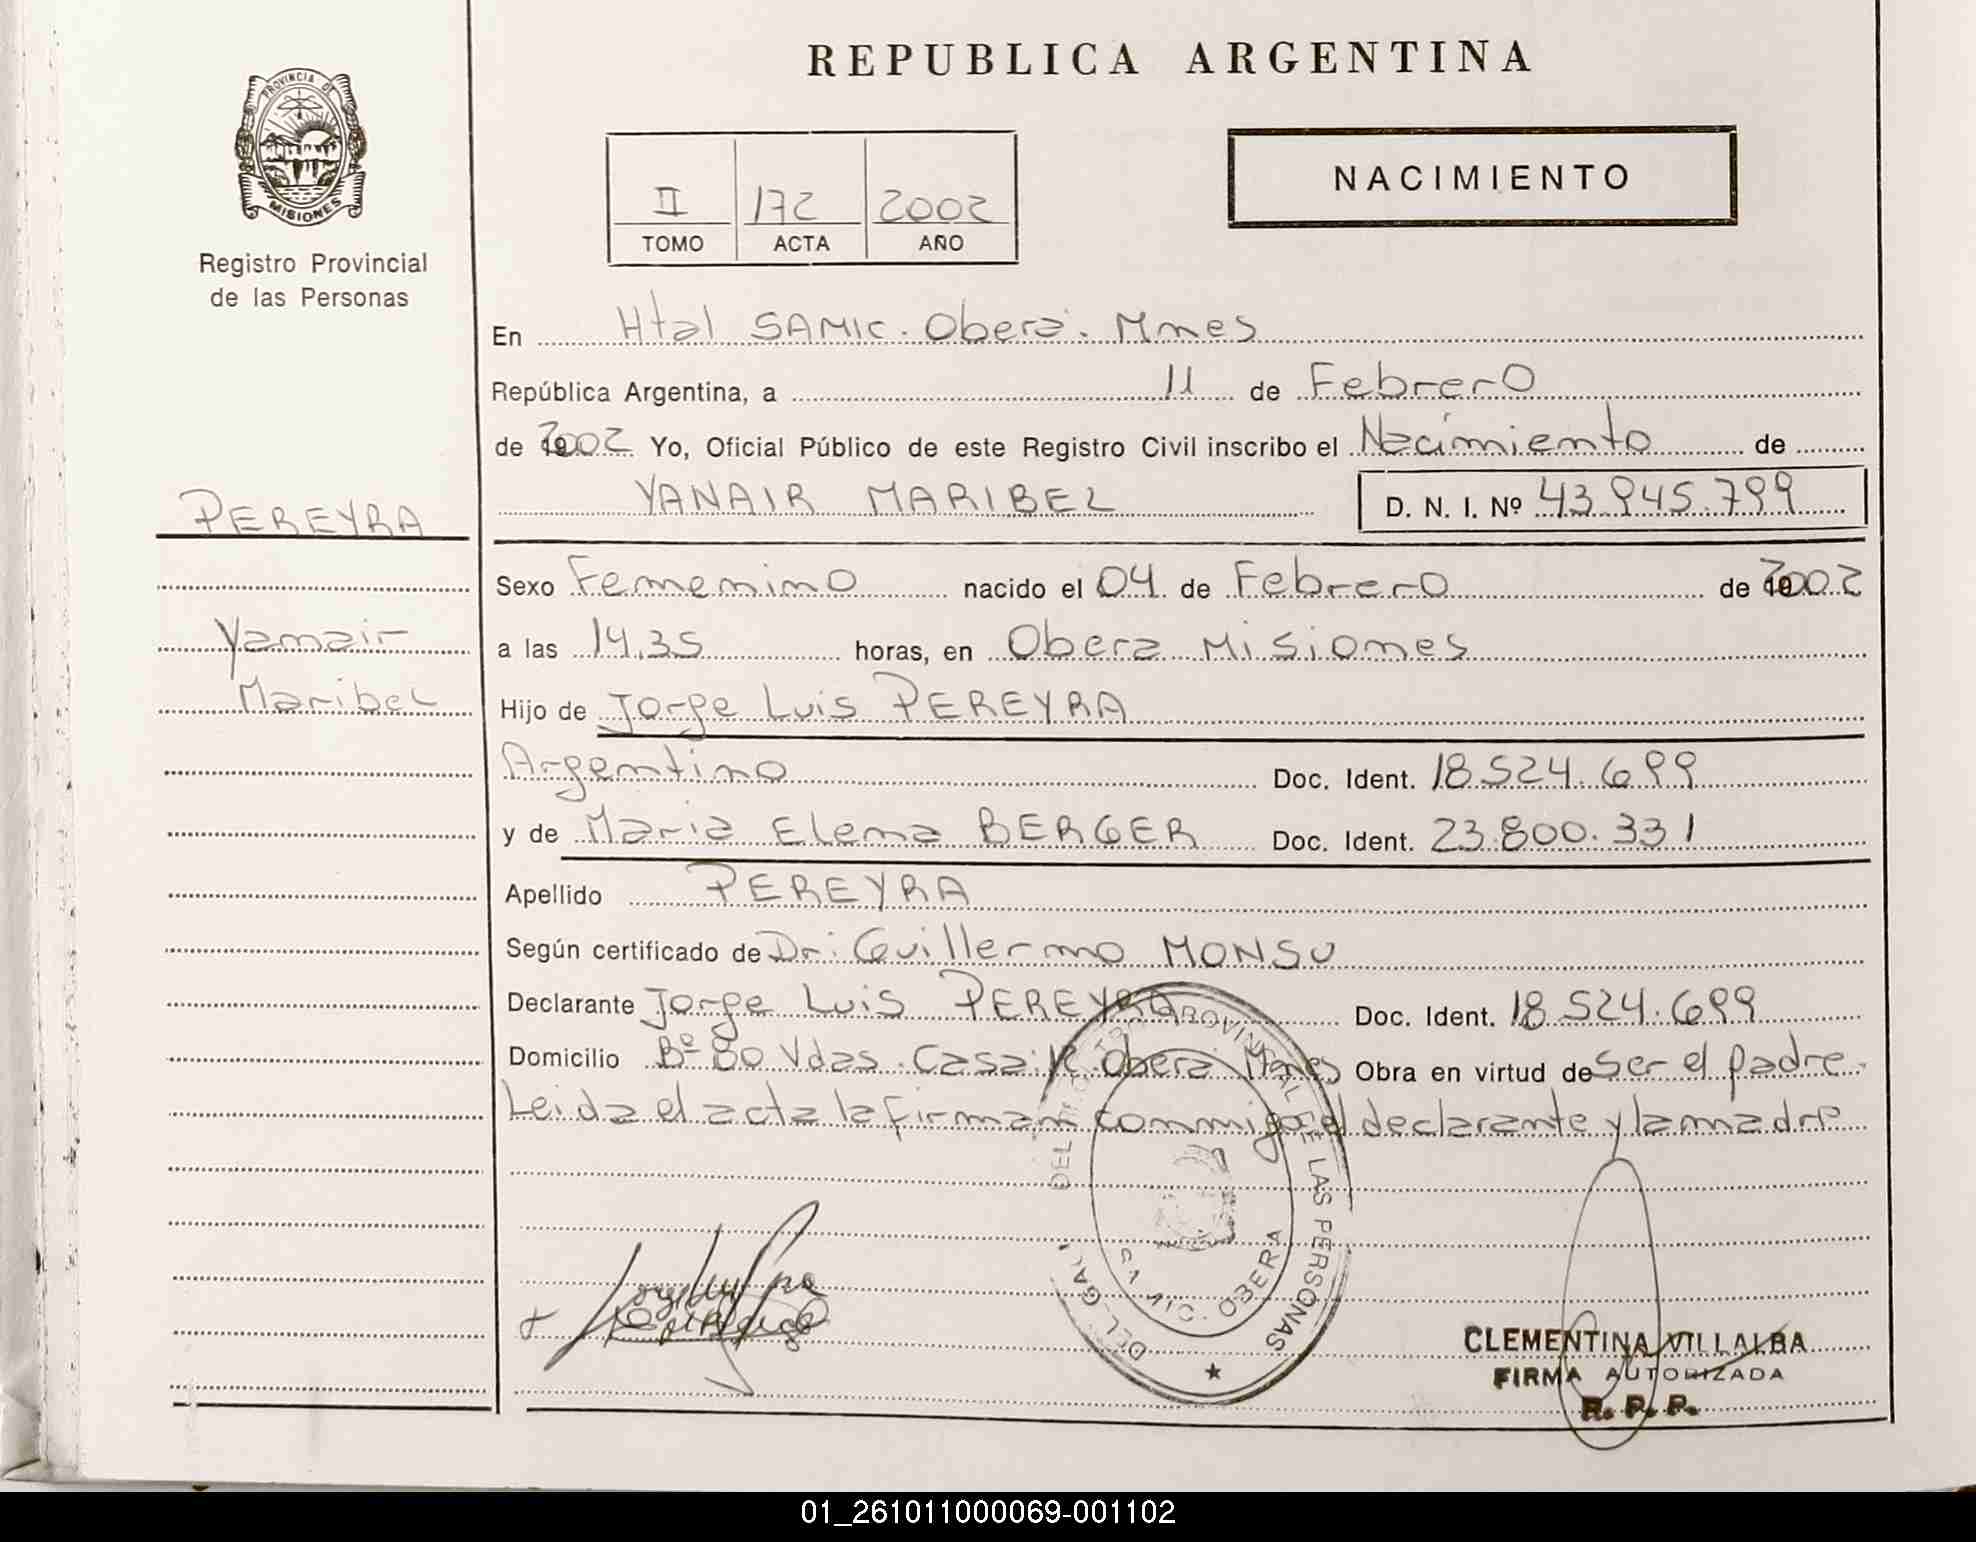 REPUBLICA ARGENTINA
PROVINCIA DE
MISIONES
Registro Provincial
de las Personas
II 172 2002
TOMO ACTA AÑO
NACIMIENTO
En Htal SAMIC. Oberá. Mnes
República Argentina, a 11 de Febrero
de 2002 Yo, Oficial Público de este Registro Civil inscribo el Nacimiento de
YANAIR MARIBEL D. N. I. Nº 43.945.799
PEREYRA
Yanair
Maribel
Sexo Femenino nacido el 04 de Febrero de 2002
a las 14.35 horas, en Obera Misiones
Hijo de Jorge Luis PEREYRA
Argentino Doc. Ident. 18.524.699
y de Maria Elena BERGER Doc. Ident. 23.800.331
Apellido PEREYRA
Según certificado de Dr: Guillermo MONSU
Declarante Jorge Luis PEREYRA Doc. Ident. 18.524.699
Domicilio Bº 80 Vdas. Casa: Obera Mnes Obra en virtud de ser el padre.
Leida el acta la firman conmigo el declarante y la madre
DEL PROVINCIAL DE LAS PERSONAS
OBERA
CLEMENTINA VILLALBA
FIRMA AUTORIZADA
R. P. P.
01_261011000069-001102